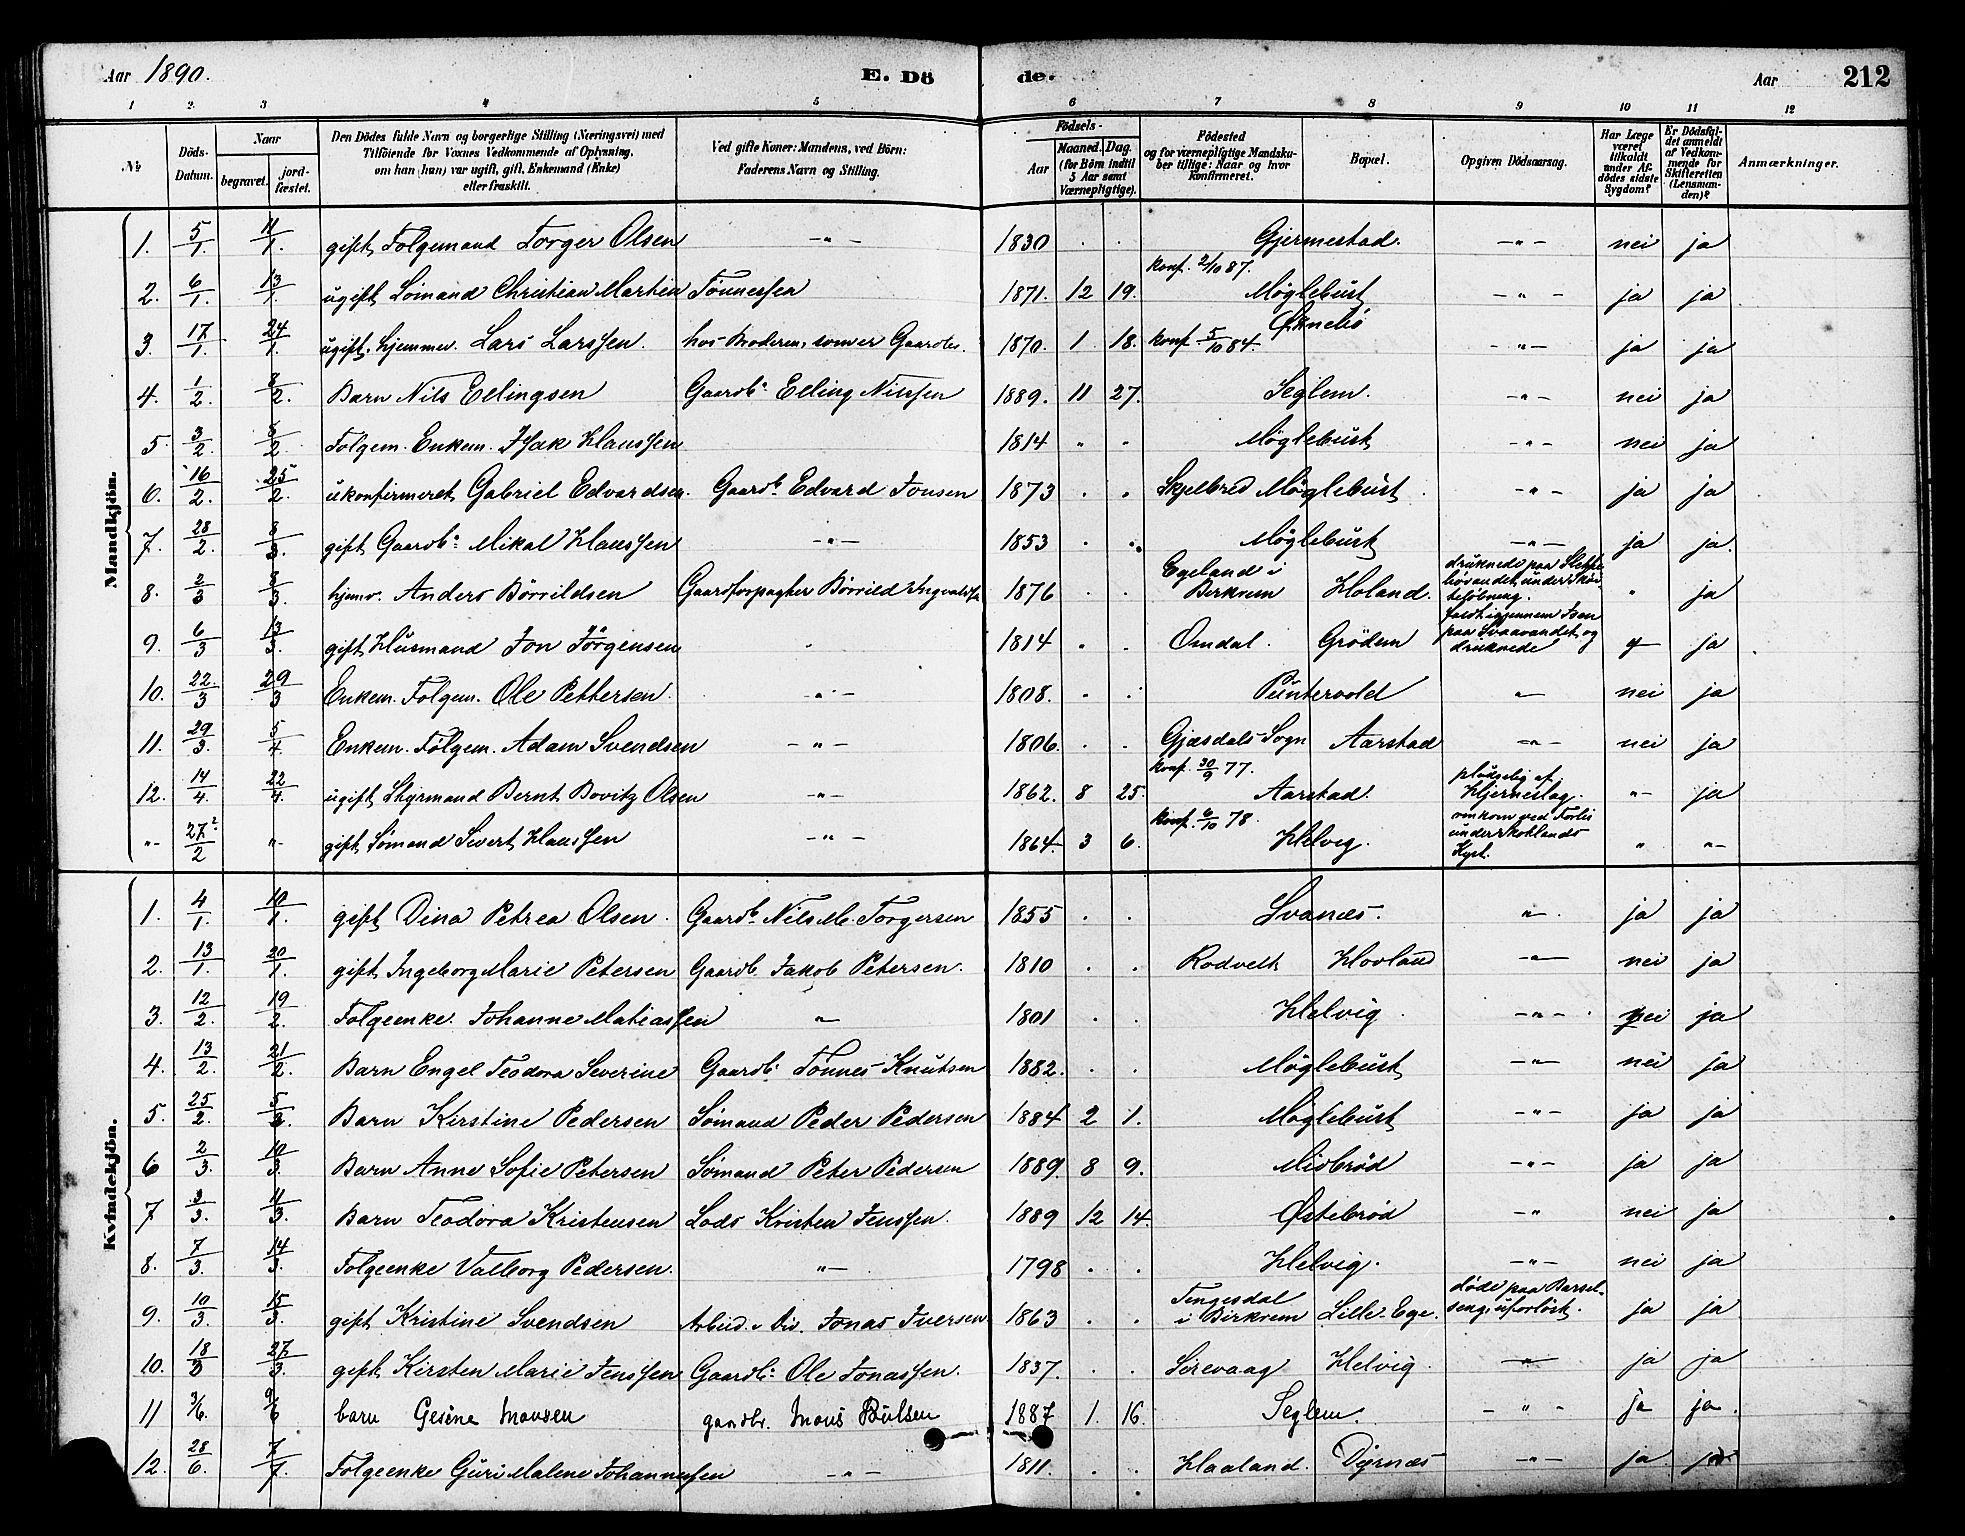 Aar 1890. E. Dö de. Aar 212
1 2. 3 4 5 6 7 8 9 10 11 12
No Döds-Datum. Naar begravet. jord-fæstet. Den Dödes fulde Navn og borgerlige Stilling (Næringsvei) med Tilföiende for Voxnes Vedkommende af Oplysning, om han (hun) var ugift, gift, Enkemand (Enke) eller fraskilt. Ved gifte Koner: Mandens, ved Börn: Faderens Navn og Stilling. Födsels- Aar Maaned. Dag. (for Börn indtil 5 Aar samt Værnepligtige). Födested og for værnepligtige Mandsku-ber tillige: Naar og hvor konfirmeret. Bopæl. Opgiven Dödsaarsag. Har Læge været tilkaldt under Af-dödes sidste Sygdom? Er Dödsfal-det anmeldt af Vedkom-mende for Skifteretten (Lensman-den)? Anmærkninger.
Mandkjön.
1. 5/1. 11/1. gift Folgemand Torger Olsen -"- 1830 . . Gjermestad. -"- nei ja
2. 6/1. 13/1. ugift Sömand Christian Martin Tönnessen 1871. 12 19. konf. 2/10 87. Möglebust -"- ja ja
3. 17/1. 24/1. ugift. hjemmev. Lars Larssen. hos Broderen, som er Gaardbr. 1870. 1 18. konf 5/10 84. -"- ja ja
4. 1/2. 8/2. Barn Nils Ellingsen Gaardbr. Elling Nilssen 1889. 11 27. Seglem. -"- nei ja
5 3/2. 8/2. Folgem. Enkem. Isak Klaussen 1814 " " Möglebust -"- nei ja
6. 16/2. 25/2. ukonfirmeret Gabriel Edvardsen. Gaardbr. Edvard Jonsen 1873 . . Skjelbred Möglebust -"- ja ja
7. 28/2. 8/3. gift Gaardbr. Mikal Klaussen -"- 1853 . . Möglebust -"- ja ja.
8. 2/3 8/3. hjemv. Anders Börrildsen Gaardforpagter Börrild Ingvalds. 1876 . . Egeland i Birkrem Holand. druknede paa under Skøi-teløbning. " ja
9. 6/3 13/3. gift Husmand Jon Jörgensen 1814 . . Omdal. Grödem faldt igjennem Isen paa Svaavandet og druknede ja
10. 22/3 29/3 Enkem. Folgem. Ole Pettersen. -"- 1808. . . Puntervold " nei ja
11. 29/3. 5/4 Enkem. Følgem. Adam Svendsen -"- 1806. . . Gjæsdals Sogn Aarstad -"- nei ja
12. 14/4. 22/4. ugift Styrmand Bernt Bovitz Olsen -"- 1862. 8 25. konf. 30/9 77. Aarstad. plødselig af Hjerneslag. "- ja
"- 27/2 "- gift Sømand Sivert Klaussen -"- 1864. 3 6. konf. 6/10 78. Helvig. omkom ved Forlis under Skotlands Kyst. " "-
Kvindekjön.
1. 4/1. 10/1. gift Dina Petrea Olsen. Gaardbr. Nils M. Torgersen 1855 . . Svanæs. " ja ja
2. 13/1. 20/1. gift Ingeborg Marie Petersen Gaardb. Jakob Petersen. 1810 . . Rodvelt Hovland " nei ja
3. 12/2. 19/2. Folgeenke. Johanne Matiassen " 1801 . . Helvig. -"- nei ja
4. 13/2. 21/2. Barn Engel Teodora Severine Gaardb. Tønnes Knutsen 1882. . . Möglebust -"- nei ja
5. 25/2. 5/3. Barn Kirstine Pedersen Sømand Peder Pedersen 1884 2 1. Möglebust -"- ja ja
6 2/3. 10/3. Barn Anne Sofie Petersen Sømand Peter Pedersen 1889. 8 9. Midbrød -"- ja ja
7 3/3. 11/3. Barn Teodora Kristensen Lods Kristen Jenssen. 1889 12 14 Østebrød -" nei ja
8. 7/3. 14/3. Folgeenke Valborg Pedersen. "- 1798 . . Helvig. -"- nei ja
9. 10/3. 15/3. gift Kristine Svendsen Arbeid. Jonas Iversen 1863 . . Tengesdal i Birkrem Lille-Ege. døde paa Barsel-seng, uforløst. ja ja
10. 18/3 27/3. gift Kirsten Marie Jenssen Gaardb. Ole Jonassen. 1837. . . Sirevaag Helvig. " ja ja
11 3/6. 9/6 barn Gesine Monsen gaardbr. Mons 1887 1. 16. Seglem. - " - ja ja.
12. 28/6. 7/7. Folgeenke Guri Malene Johannessen -"- 1811. . . Haaland. Dyrnæs -"- ja ja